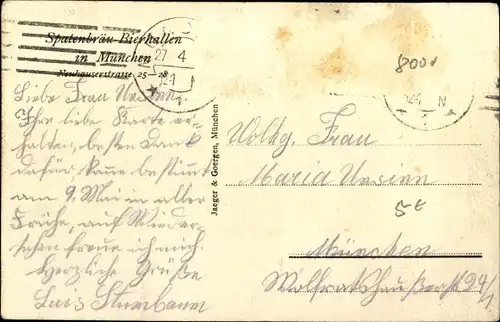 Spatenbräu-Bierhallen
in München
Neuhauserstrasse 25–28
27 4
N
8000
Liebe Frau Ursinn.
Ihre liebe Karte er-
halten, besten Dank
dafür kann bestimmt
am 9. Mai in aller
Frühe, auf Wieder-
sehen freue ich mich.
Herzliche Grüße
Luis Sturmbaum
Jaeger & Goergen, München
Wolhg. Frau
Maria Ursinn
5€
München
Wolfratshauserstr 24/1